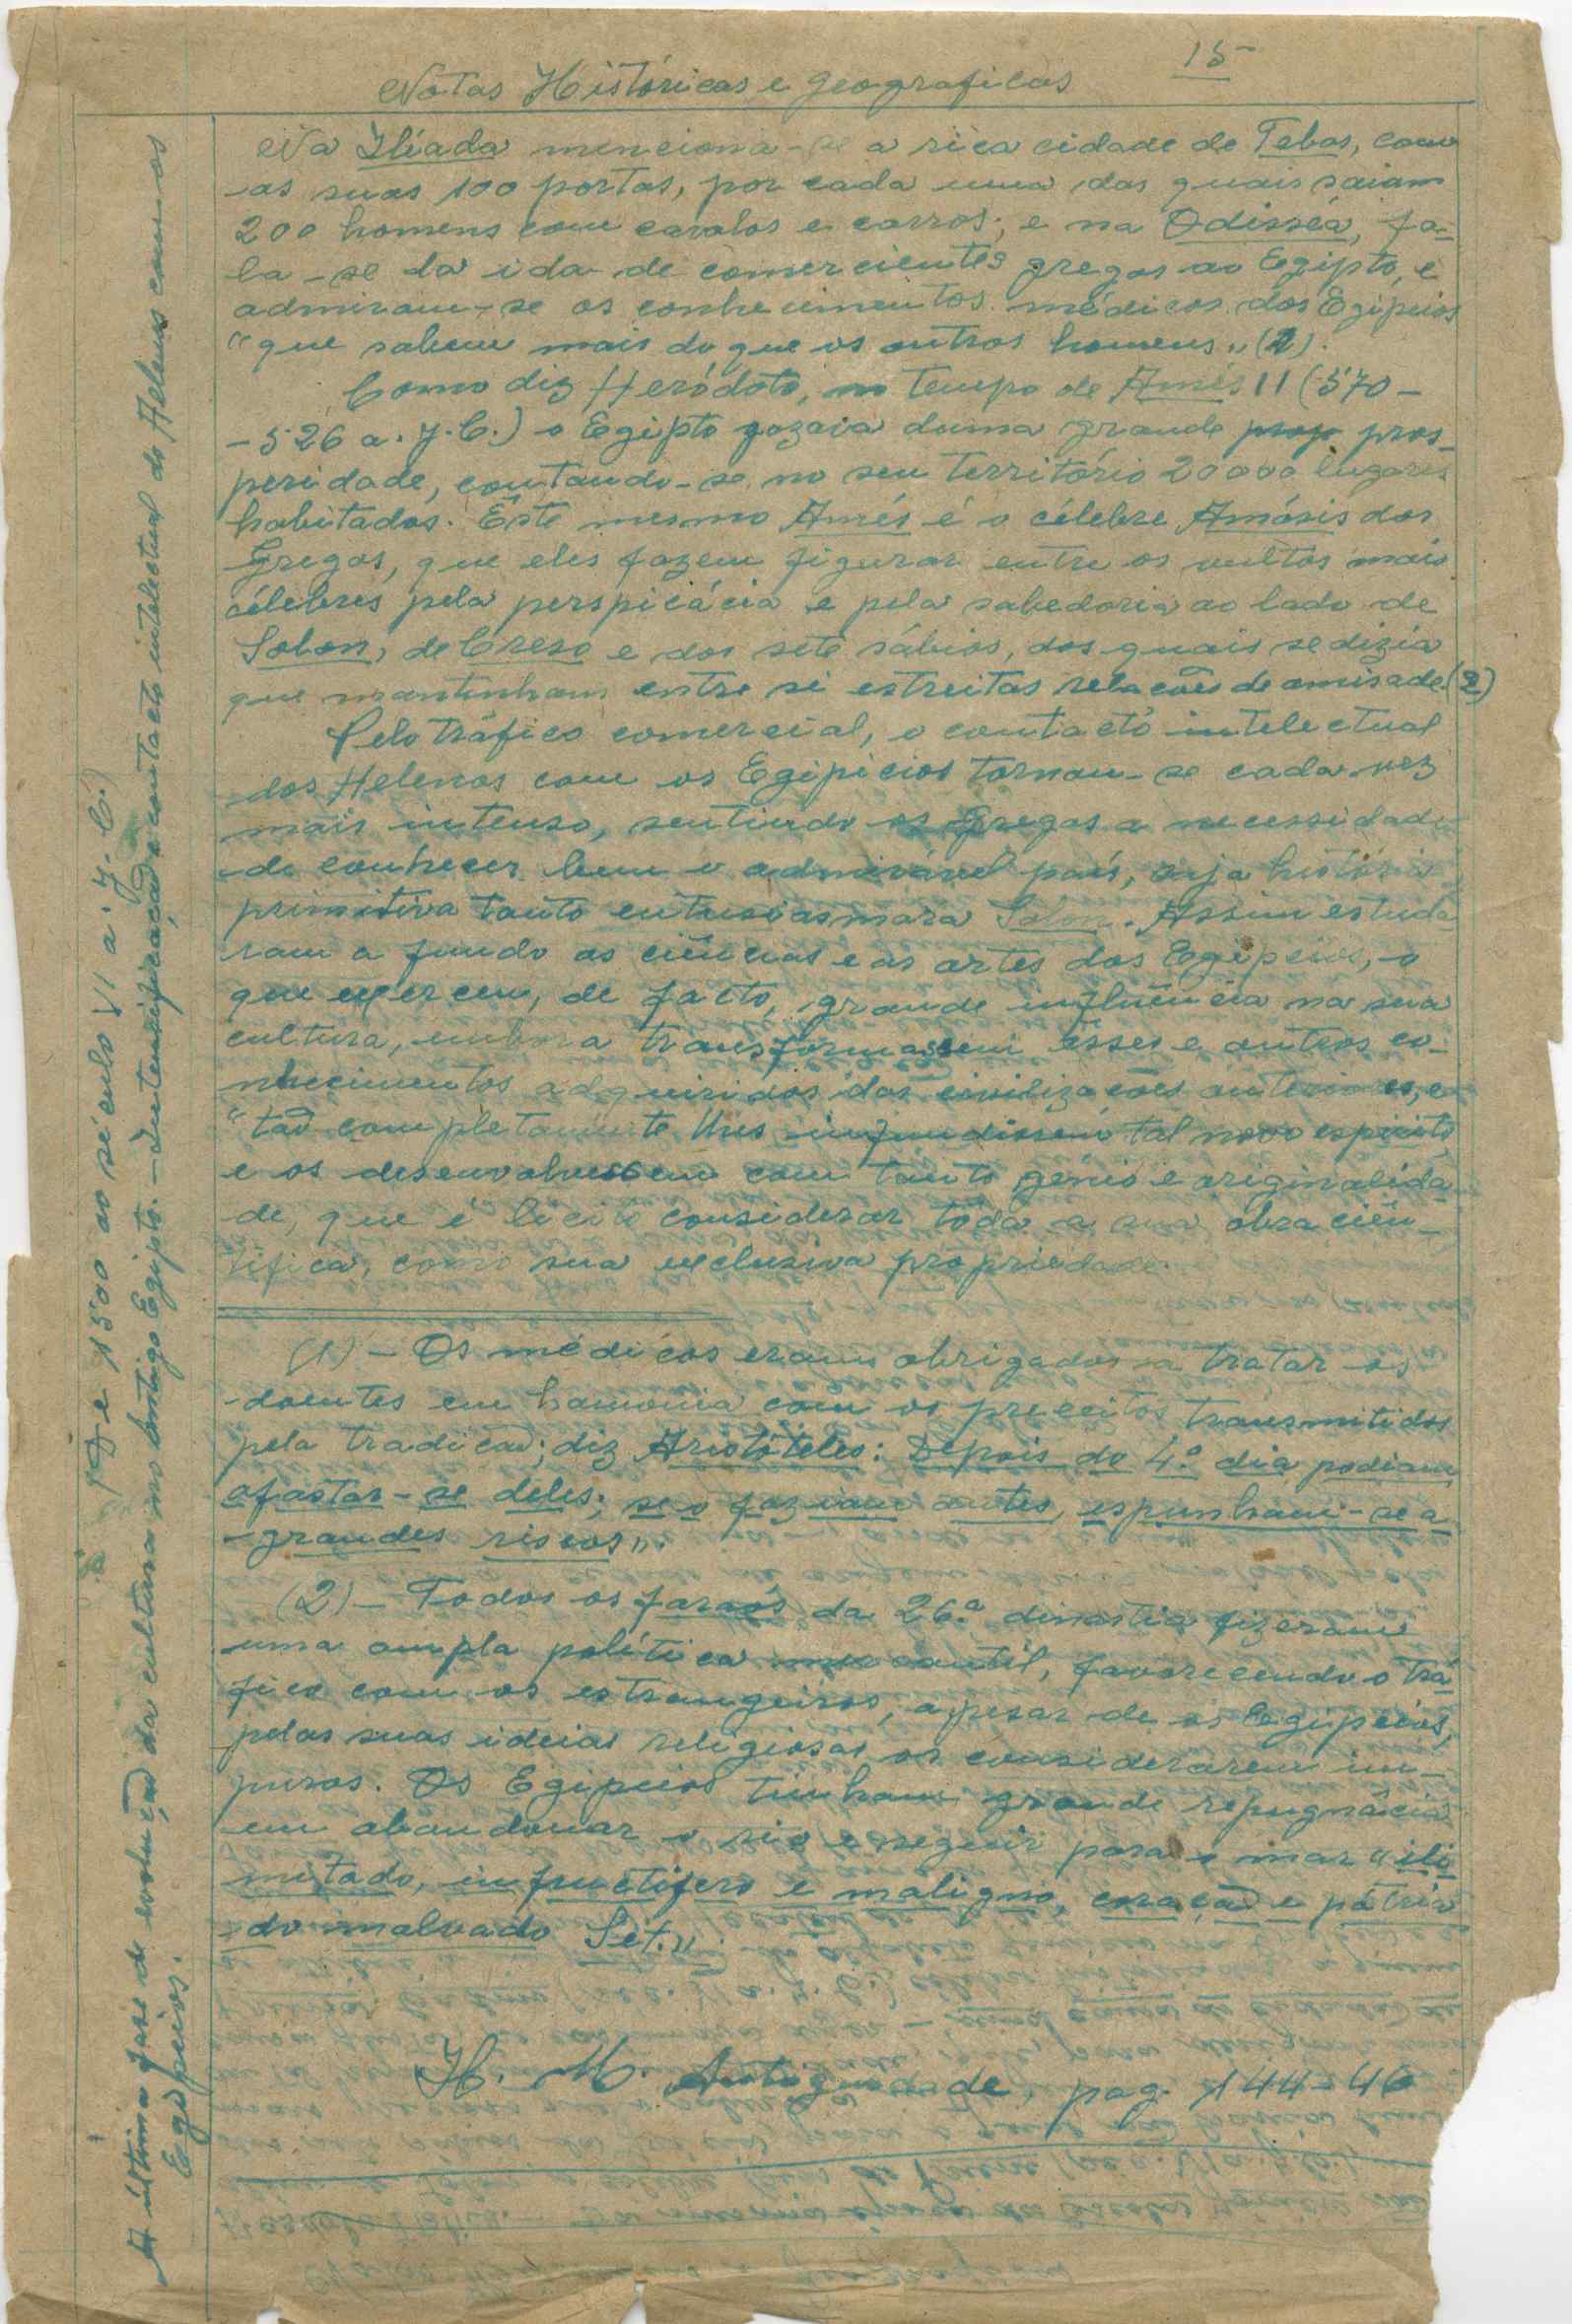 15
Notas Históricas e Geograficas
Na Ilíada menciona-se a rica cidade de Tebas, com
as suas 100 portas, por cada uma das quais saiam
200 homens com cavalos e carros; e na Odisséa, fa-
la-se da ida de comercientes gregos ao Egipto, e
admiram-se os conhecimentos médicos dos Egipcios
"que sabem mais do que os outros homens„ (1).
Como diz Heródoto, no tempo de Amés II (570-
-526 a. J. C.) o Egipto gozava duma grande pros-
peridade, contando-se no seu território 20000 lugares
habitados. Êste mesmo Amés é o célebre Amásis dos
Gregos, que eles fazem figurar entre os vultos mais
célebres pela perspicácia e pela sabedoria ao lado de
Solon, de Creso e dos sete sábios, dos quais se dizia
que mantinham entre si estreitas relações de amisade. (2)
Pelo tráfico comercial, o contacto intelectual
dos Helenos com os Egipicios tornou-se cada vez
mais intenso, sentindo os Gregos a necessidade
de conhecer bem o admirável país, cuja história
primitiva tanto entusiasmara Solon. Assim estuda-
ram a fundo as ciências e as artes dos Egipcios, o
que exerceu, de facto, grande influência na sua
cultura, embora transformassem êsses e outros co-
nhecimentos adquiridos das civilizações anteriores, e
"tão completamente lhes infundissem tal novo espírito
e os desenvolvessem com tanto génio e originalida-
de, que é licito considerar toda a sua obra cien-
tífica, como sua exclusiva propriedade.
(1) - Os médicos eram obrigados a tratar os
doentes em harmonia com os preceitos transmitidos
pela tradição; diz Aristóteles: Depois do 4.º dia podiam
afastar-se deles; se o faziam antes, espunham-se a
grandes riscos„.
(2) - Todos os faraós da 26.ª dinastia fizeram
uma ampla política mercantil, favorecendo o trá-
fico com os estrangeiros, apesar de os Egipcios,
pelas suas ideias religiosas os considerarem im-
puros. Os Egipcios tinham grande repugnância
em abandonar o rio e seguir para o mar "ili-
mitado, infructífero e maligno, coração e pátria
do malvado Set.„
H. M. Antiguidade, pag. 144-46
De 1500 ao século VI a. J. C.)
A última fase de evolução da cultura no antigo Egipto. - Intensificação e contacto intelectual do Helenos com os
Egipcios.